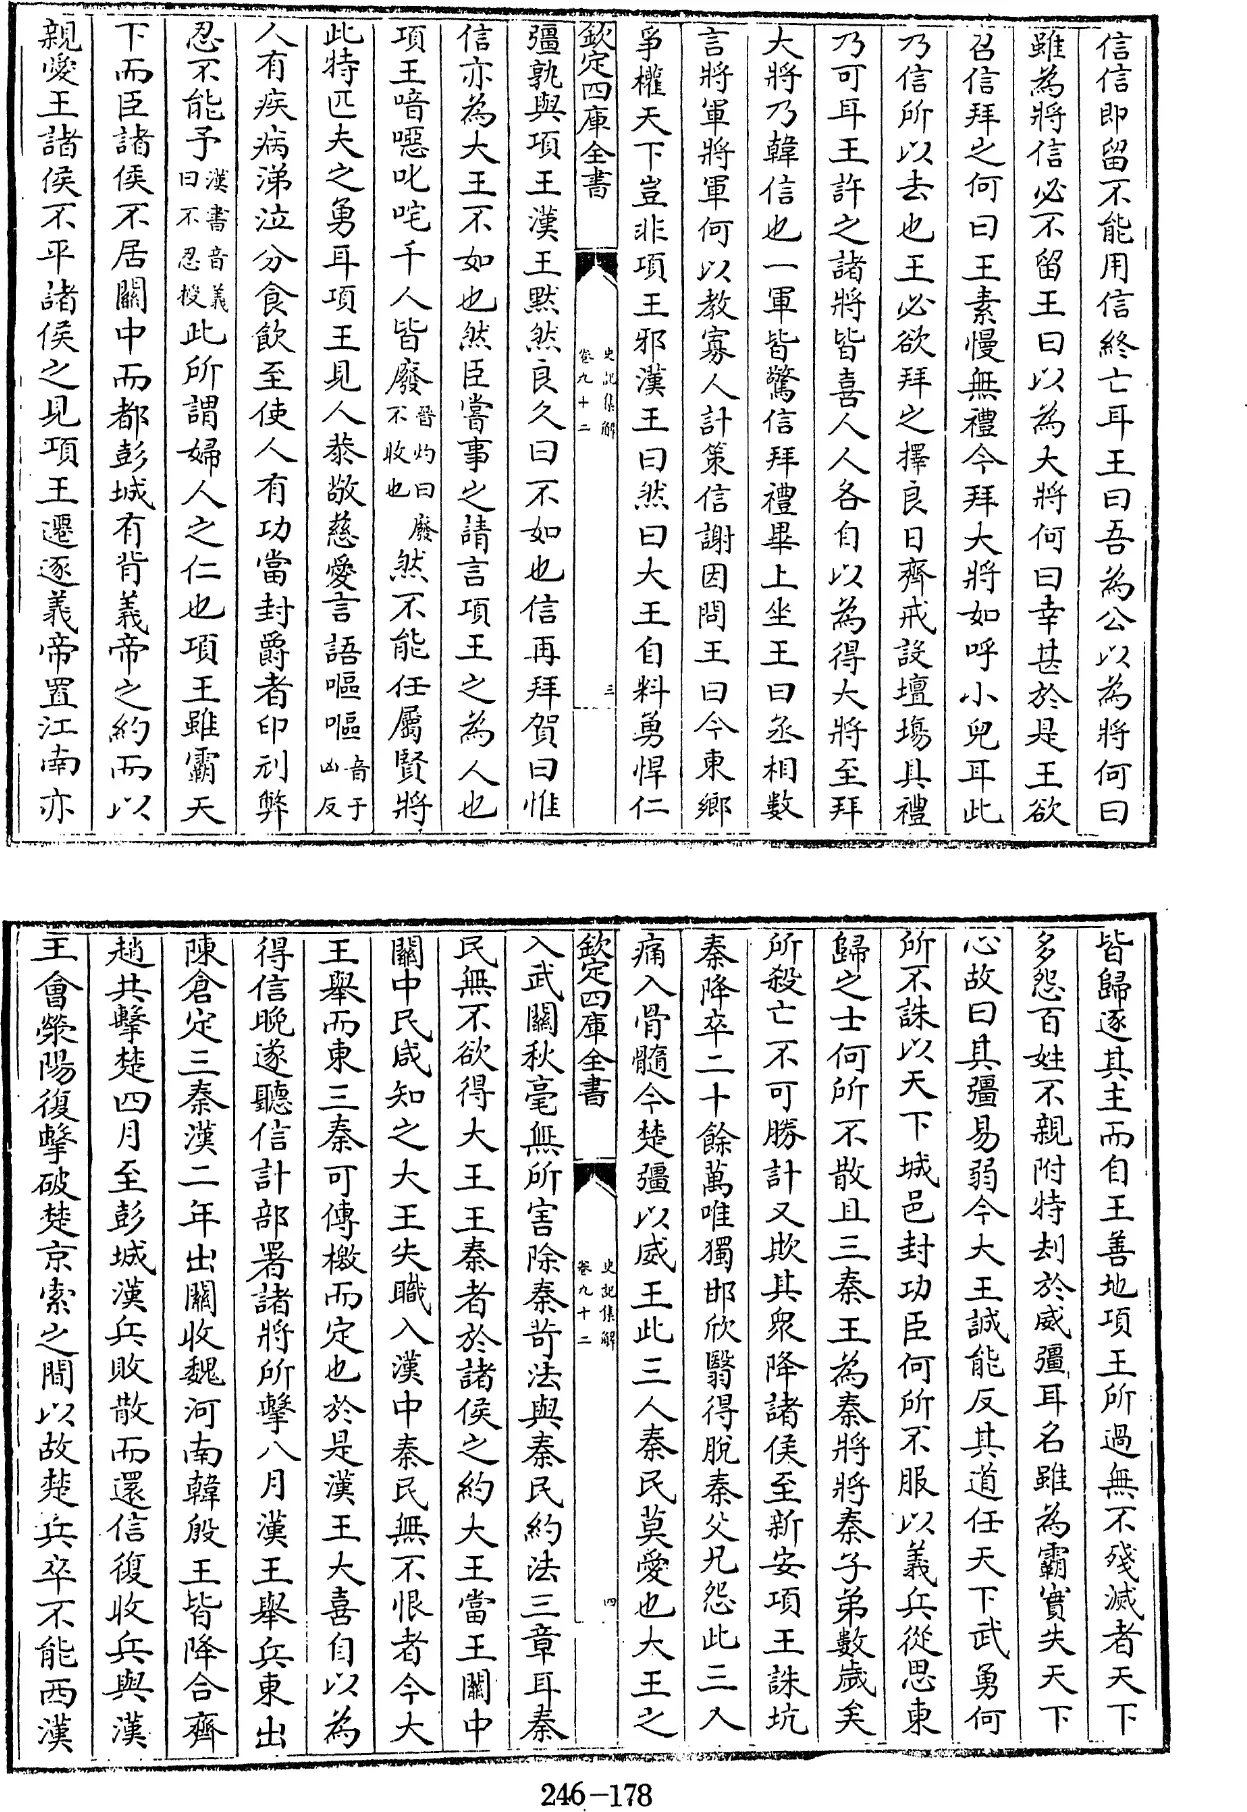 信信即留不能用信終亡耳王曰吾為公以為將何曰
雖為將信必不留王曰以為大將何曰幸甚於是王欲
召信拜之何曰王素慢無禮今拜大將如呼小兒耳此
乃信所以去也王必欲拜之擇良日齊戒設壇場具禮
乃可耳王許之諸將皆喜人人各自以為得大將至拜
大將乃韓信也一軍皆驚信拜禮畢上坐王曰丞相數
言將軍將軍何以教寡人計策信謝因問王曰今東鄉
爭權天下豈非項王邪漢王曰然曰大王自料勇悍仁
欽定四庫全書 史記集解 卷九十二 三
彊孰與項王漢王黙然良久曰不如也信再拜賀曰惟
信亦為大王不如也然臣嘗事之請言項王之為人也
項王喑噁叱咤千人皆廢晉灼曰廢不收也然不能任屬賢將
此特匹夫之勇耳項王見人恭敬慈愛言語嘔嘔音于凶反
人有疾病涕泣分食飲至使人有功當封爵者印刓弊
忍不能予漢書音義曰不忍授此所謂婦人之仁也項王雖霸天
下而臣諸侯不居關中而都彭城有背義帝之約而以
親愛王諸侯不平諸侯之見項王遷逐義帝置江南亦
皆歸逐其主而自王善地項王所過無不殘滅者天下
多怨百姓不親附特刦於威彊耳名雖為霸實失天下
心故曰其彊易弱今大王誠能反其道任天下武勇何
所不誅以天下城邑封功臣何所不服以義兵從思東
歸之士何所不散且三秦王為秦將將秦子弟數歲矣
所殺亡不可勝計又欺其衆降諸侯至新安項王誅坑
秦降卒二十餘萬唯獨邯欣翳得脫秦父兄怨此三人
痛入骨髓今楚彊以威王此三人秦民莫愛也大王之
欽定四庫全書 史記集解 卷九十二 四
入武關秋毫無所害除秦苛法與秦民約法三章耳秦
民無不欲得大王王秦者於諸侯之約大王當王關中
關中民咸知之大王失職入漢中秦民無不恨者今大
王舉而東三秦可傳檄而定也於是漢王大喜自以為
得信晚遂聽信計部署諸將所擊八月漢王舉兵東出
陳倉定三秦漢二年出關收魏河南韓殷王皆降合齊
趙共擊楚四月至彭城漢兵敗散而還信復收兵與漢
王會滎陽復擊破楚京索之間以故楚兵卒不能西漢
246-178